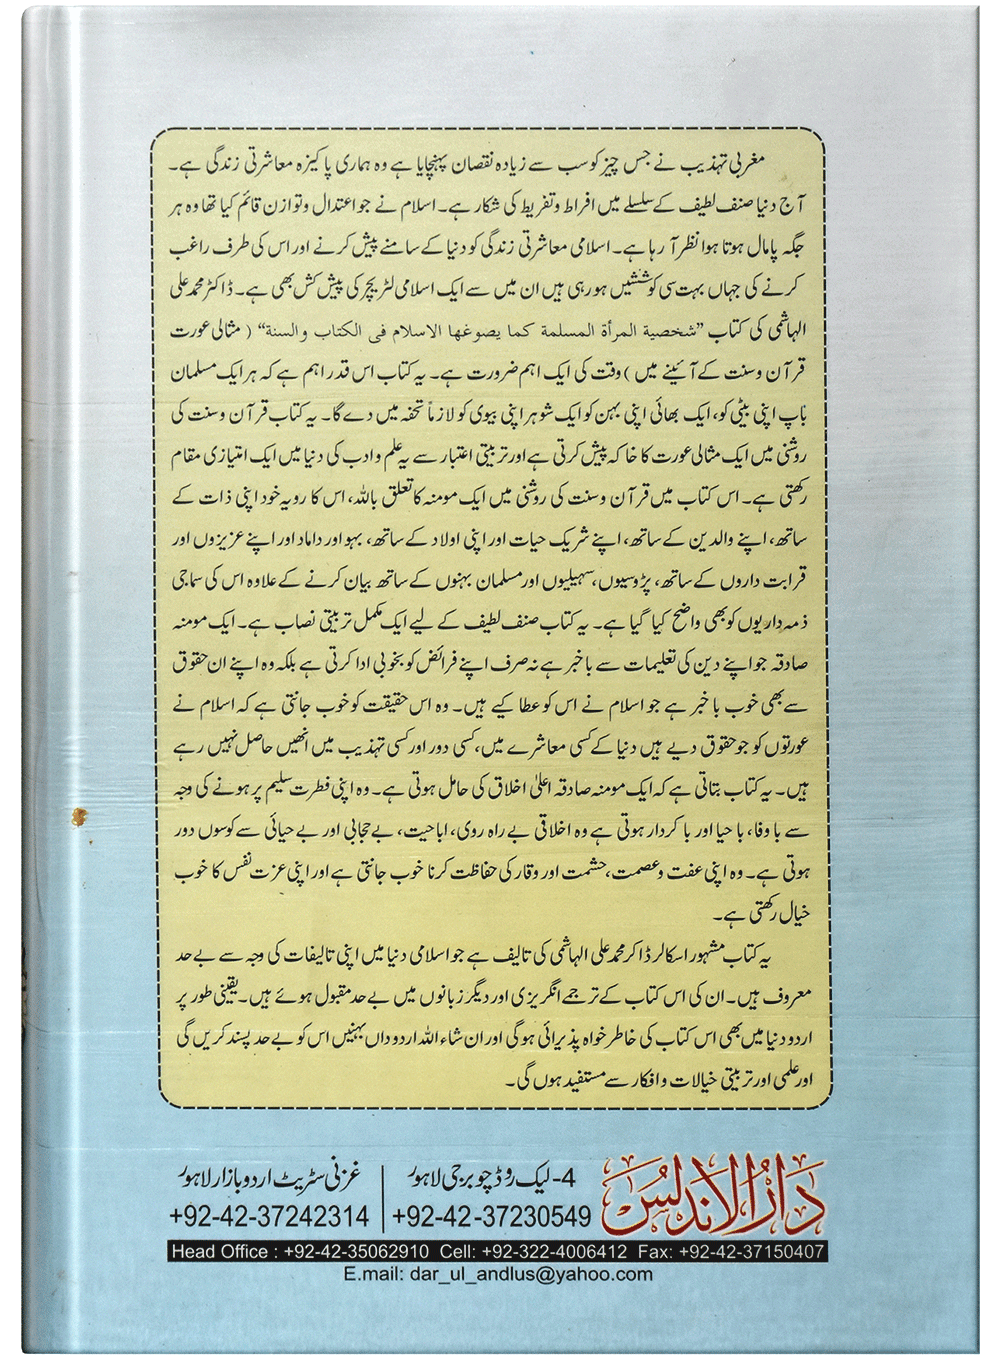 مغربی تہذیب نے جس چیز کو سب سے زیادہ نقصان پہنچایا ہے وہ ہماری پاکیزہ معاشرتی زندگی ہے۔
آج دنیا صنف لطیف کے سلسلے میں افراط وتفریط کی شکار ہے۔ اسلام نے جو اعتدال وتوازن قائم کیا تھا وہ ہر
جگہ پامال ہوتا ہوا نظر آ رہا ہے۔ اسلامی معاشرتی زندگی کو دنیا کے سامنے پیش کرنے اور اس کی طرف راغب
کرنے کی جہاں بہت سی کوششیں ہو رہی ہیں ان میں سے ایک اسلامی لٹریچر کی پیش کش بھی ہے۔ ڈاکٹر محمد علی
الہاشمی کی کتاب ”شخصية المرأة المسلمة كما يصوغها الاسلام فى الكتاب والسنة“ ( مثالی عورت
قرآن وسنت کے آئینے میں ) وقت کی ایک اہم ضرورت ہے۔ یہ کتاب اس قدر اہم ہے کہ ہر ایک مسلمان
باپ اپنی بیٹی کو، ایک بھائی اپنی بہن کو ایک شوہر اپنی بیوی کو لازماً تحفہ میں دے گا۔ یہ کتاب قرآن وسنت کی
روشنی میں ایک مثالی عورت کا خاکہ پیش کرتی ہے اور تربیتی اعتبار سے یہ علم و ادب کی دنیا میں ایک امتیازی مقام
رکھتی ہے۔ اس کتاب میں قرآن وسنت کی روشنی میں ایک مومنہ کا تعلق باللہ، اس کا رویہ خود اپنی ذات کے
ساتھ، اپنے والدین کے ساتھ، اپنے شریک حیات اور اپنی اولاد کے ساتھ، بہو اور داماد اور اپنے عزیزوں اور
قرابت داروں کے ساتھ، پڑوسیوں، سہیلیوں اور مسلمان بہنوں کے ساتھ بیان کرنے کے علاوہ اس کی سماجی
ذمہ داریوں کو بھی واضح کیا گیا ہے۔ یہ کتاب صنف لطیف کے لیے ایک مکمل تربیتی نصاب ہے۔ ایک مومنہ
صادقہ جو اپنے دین کی تعلیمات سے باخبر ہے نہ صرف اپنے فرائض کو بخوبی ادا کرتی ہے بلکہ وہ اپنے ان حقوق
سے بھی خوب با خبر ہے جو اسلام نے اس کو عطا کیے ہیں۔ وہ اس حقیقت کو خوب جانتی ہے کہ اسلام نے
عورتوں کو جو حقوق دیے ہیں دنیا کے کسی معاشرے میں، کسی دور اور کسی تہذیب میں انھیں حاصل نہیں رہے
ہیں۔ یہ کتاب بتاتی ہے کہ ایک مومنہ صادقہ اعلیٰ اخلاق کی حامل ہوتی ہے۔ وہ اپنی فطرت سلیم پر ہونے کی وجہ
سے با وفا، با حیا اور با کردار ہوتی ہے وہ اخلاقی بے راہ روی، اباحیت، بے حجابی اور بے حیائی سے کوسوں دور
ہوتی ہے۔ وہ اپنی عفت و عصمت، حشمت اور وقار کی حفاظت کرنا خوب جانتی ہے اور اپنی عزت نفس کا خوب
خیال رکھتی ہے۔
یہ کتاب مشہور اسکالر ڈاکر محمد علی الہاشمی کی تالیف ہے جو اسلامی دنیا میں اپنی تالیفات کی وجہ سے بے حد
معروف ہیں۔ ان کی اس کتاب کے ترجمے انگریزی اور دیگر زبانوں میں بے حد مقبول ہوئے ہیں۔ یقینی طور پر
اردو دنیا میں بھی اس کتاب کی خاطر خواہ پذیرائی ہوگی اور ان شاء اللہ اردو داں بہنیں اس کو بے حد پسند کریں گی
اور علمی اور تربیتی خیالات و افکار سے مستفید ہوں گی۔
دارالاندلس
4- لیک روڈ چوبرجی لاہور
+92-42-37230549
غزنی سٹریٹ اردو بازار لاہور
+92-42-37242314
Head Office : +92-42-35062910 Cell: +92-322-4006412 Fax: +92-42-37150407
E.mail: dar_ul_andlus@yahoo.com